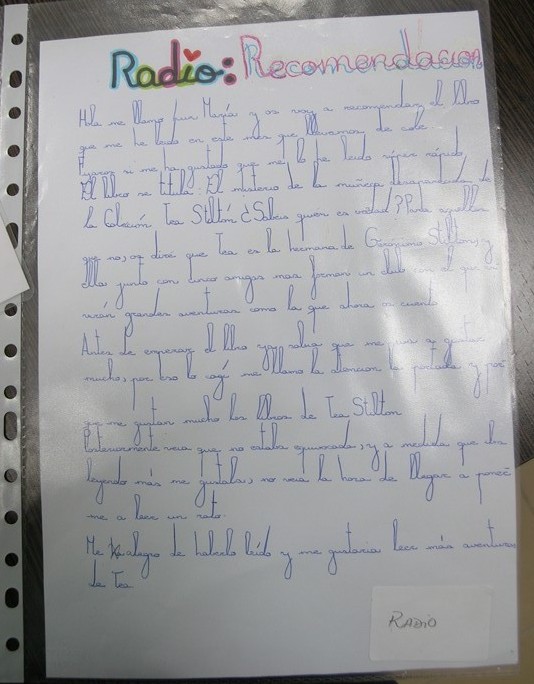 Radio: Recomendacion
Hola me llamo Juri María y os voy a recomendar el libro
que me he leido en este mes que llevamos de cole
Fijaros si me ha gustado que me lo he leido súper rápido
El libro se titula: El misterio de la muñeca desaparecida de
la Coleción Tea Stiltón ¿Sabeis quien es verdad? Para aquellos
que no, os diré que Tea es la hermana de Gerónimo Stilton, y
ella junto con cinco amigas mas forman un club con el que vi
virán grandes aventuras como la que ahora os cuento
Antes de empezar el libro ya sabia que me iva a gustar
mucho, por eso lo cogí me llamo la atencion la portada y por
que me gustan mucho los libros de Tea Stilton
Posteriormente veia que no estaba equivocada, y a medida que iba
leyendo más me gustaba, no veia la hora de llegar a poner
me a leer un rato.
Me alegro de haberlo leído y me gustaria leer más aventuras
de Tea
RADIO